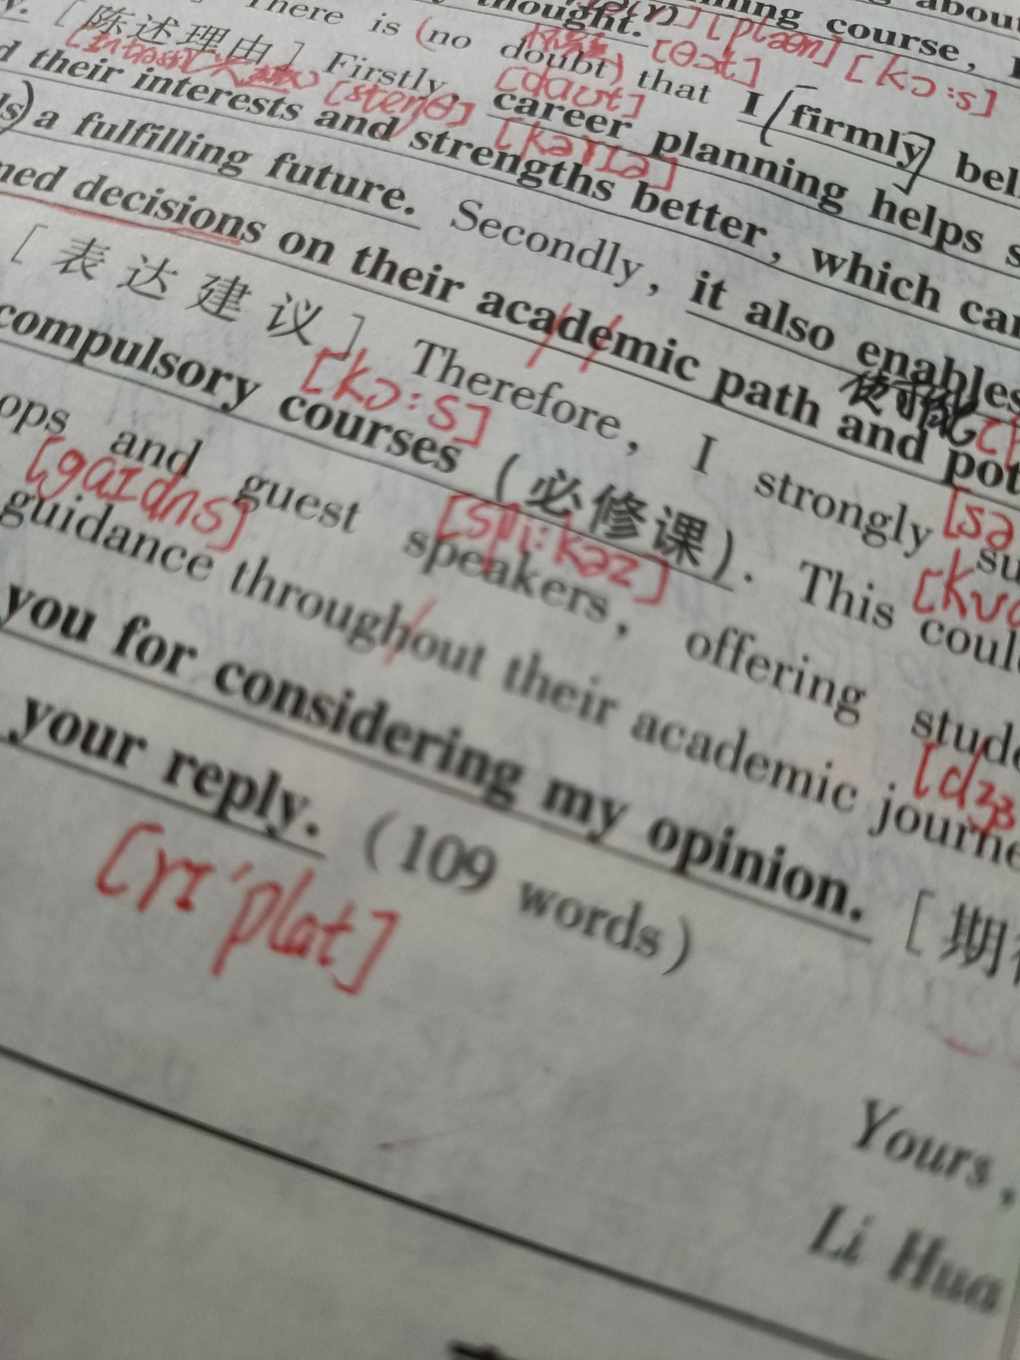 about
thought. [plæən] ning course,
[陈述理由] There is (no doubt) that I (firmly) bel
怀疑 [θɔt] [kɔ:s]
Firstly, [daʊt] career planning helps s
their interests and strengths better, which can
[kərɪə]
a fulfilling future. Secondly, it also enables
使可能
decisions on their academic path and pot
[表达建议] Therefore, I strongly su
[kɔ:s]
compulsory courses (必修课). This could
ops and guest speakers, offering stude
[gaɪdns] [spi:kəz]
guidance throughout their academic journe
you for considering my opinion. [期待
your reply. (109 words)
[rɪ'plat]
Yours,
Li Hua